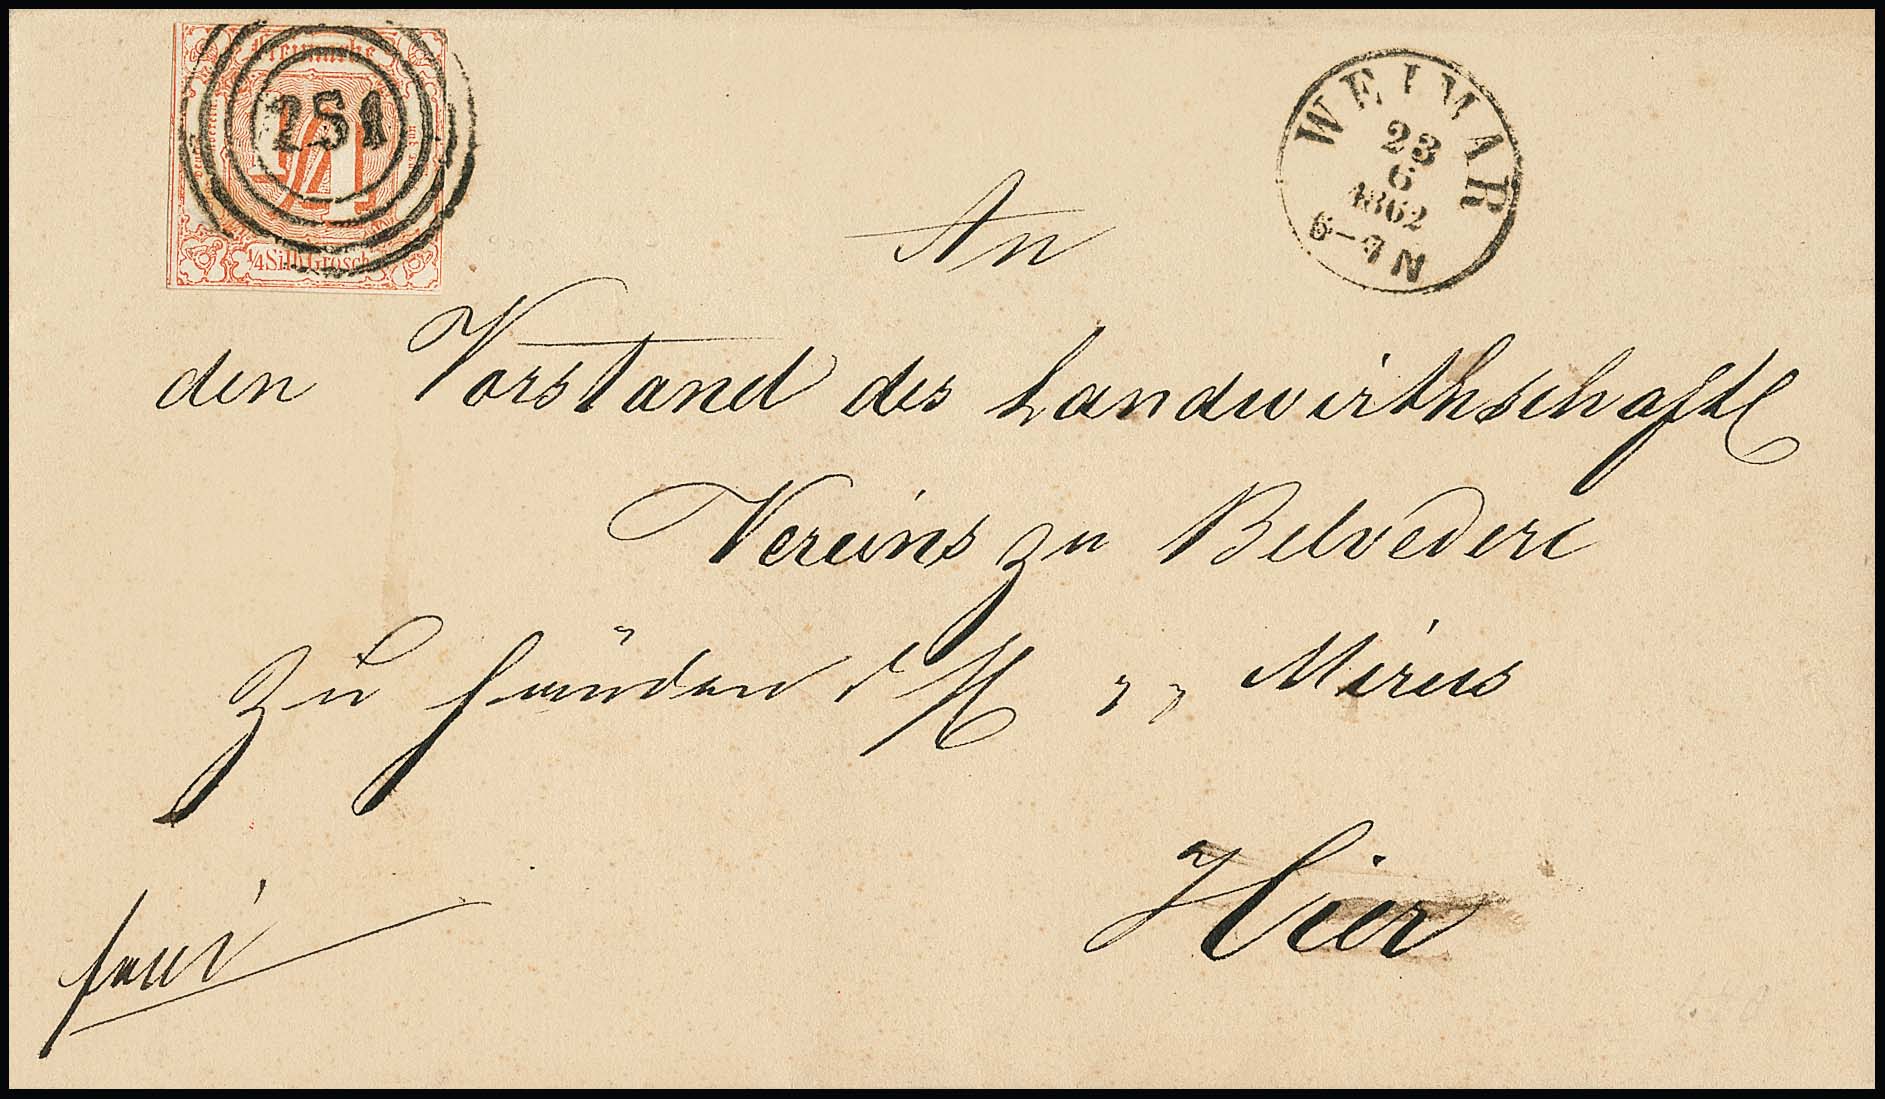 Freimarke
251
1/4
1/4 Silb.Grosch.
WEIMAR
23
6
1862
6-7 N
An
den Vorstand des Landwirthschaftl
Vereins zu Belvedere
zu Händen d H Mirus
Hier
frei